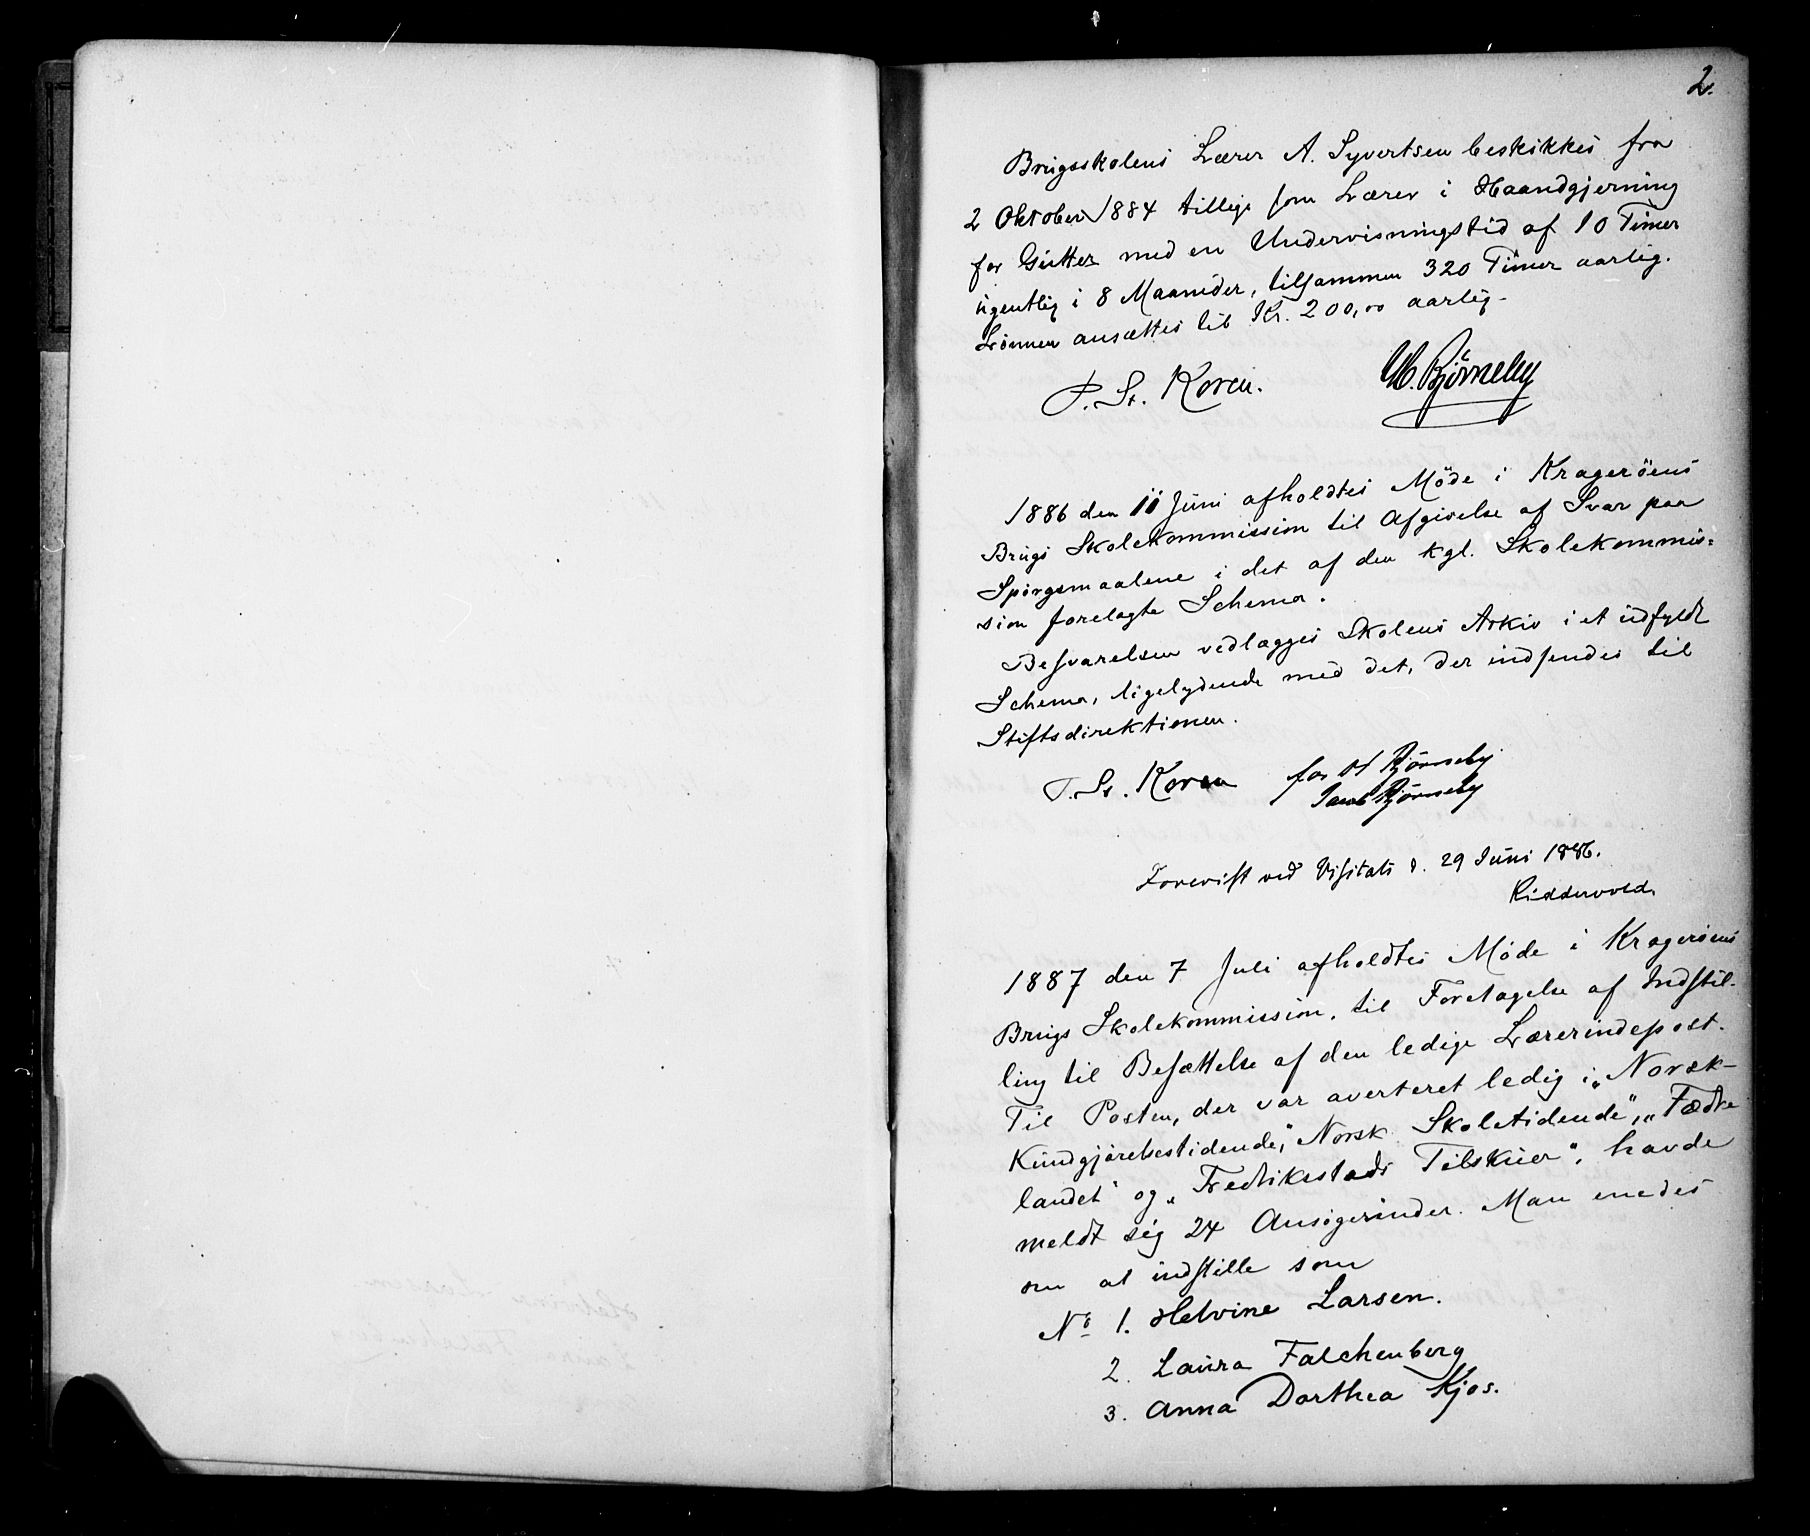 2.
Brugsskolens Lærer A. Syvertsen beskikkes fra
2 Oktober 1884 tillige som Lærer i Haandgjerning
for Gutter med en Undervisningstid af 10 Timer
ugentlig i 8 Maaneder, tilsammen 320 Timer aarlig.
Lønnen ansættes til Kr. 200,00 aarlig.
P. St. Koren. H. Bjørneby
1886 den 11 Juni afholdtes Møde i Kragerøens
Brugs Skolekommission til Afgivelse af Svar paa
Spørgsmaalene i det af den kgl. Skolekommis=
sion forelagte Schema.
Besvarelsen vedlægges Skolens Arkiv i et udfyldt
Schema, ligelydende med det, der indsendes til
Stiftsdirektionen.
P. St. Koren for H Bjørneby
Jacob Bjørneby
Forevist ved Visitats d. 29 Juni 1886.
Riddervold.
1887 den 7 Juli afholdtes Møde i Kragerøens
Brugs Skolekommission, til Foretagelse af Indstil-
ling til Besættelse af den ledige Lærerindepost.
Til Posten, der var averteret ledig i „Norsk-
Kundgjørelsestidende", „Norsk Skoletidende", „Fædre
landet" og „Fredriksstads Tilskuer", havde
meldt sig 24 Ansøgerinder. Man enedes
om at indstille som
No 1. Helvine Larsen.
2. Laura Falchenberg
3. Anna Dorthea Kjos.